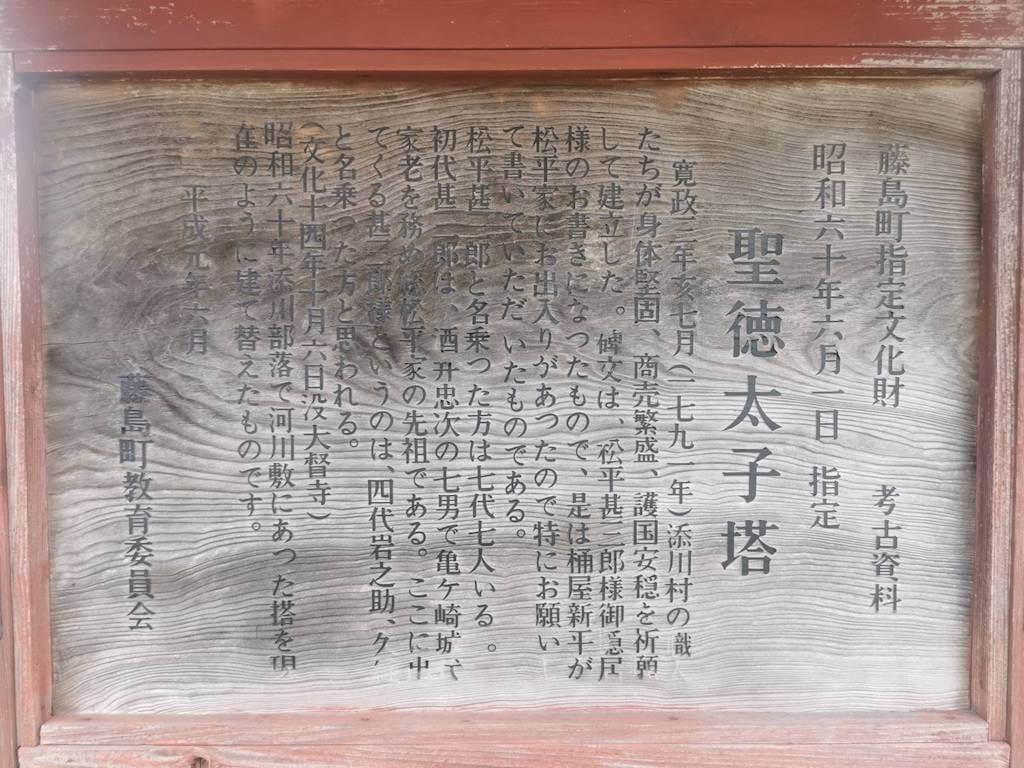 藤島町指定文化財 考古資料
昭和六十年六月一日 指定
聖徳太子塔
寛政三年亥七月(一七九一年)添川村の
たちが身体堅固、商売繁盛、護国安穏を祈願
して建立した。碑文は、松平甚三郎様御隠居
様のお書きになったもので、是は桶屋新平が
松平家にお出入りがあったので特にお願い
て書いていただいたものである。
松平甚三郎と名乗った方は七代七人いる。
初代甚三郎は、酒井忠次の七男で亀ヶ崎城代
家老を務め松平家の先祖である。ここに出
てくる甚三郎様というのは、四代岩之助、
と名乗った方と思われる。
(文化十四年十月六日没大督寺)
昭和六十年添川部落で河川敷にあった塔を現
在のように建て替えたものです。
平成元年六月
藤島町教育委員会